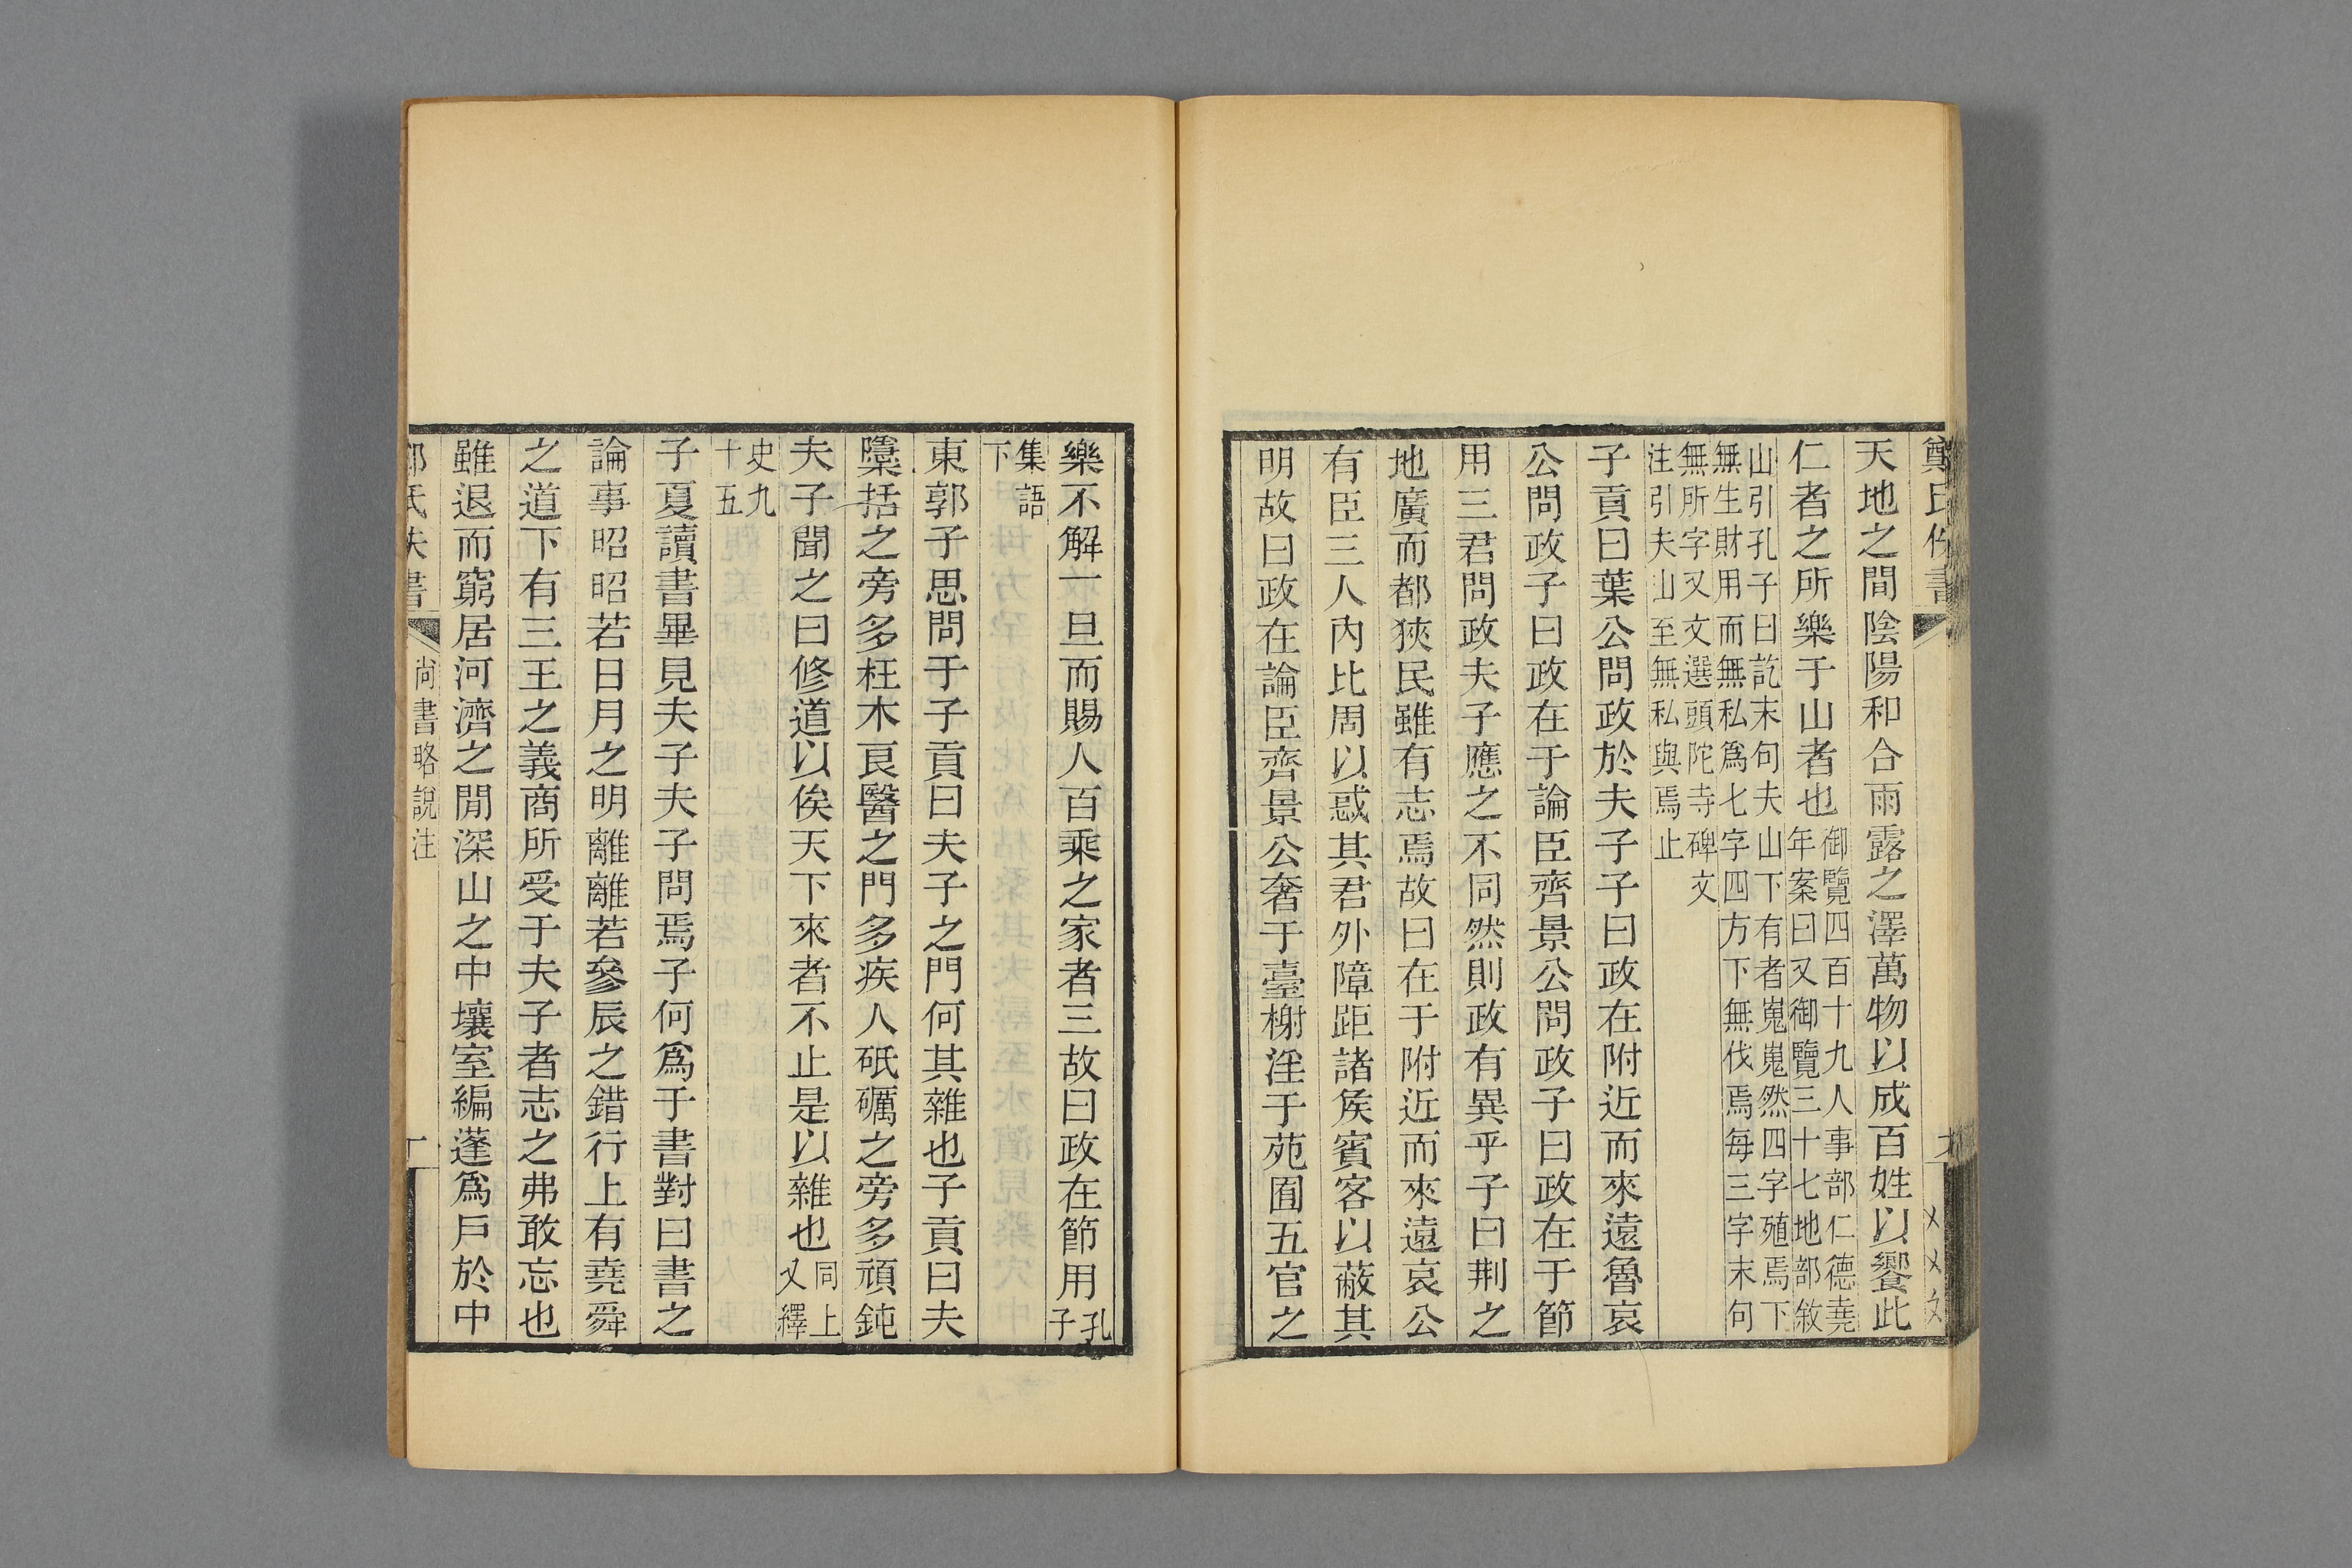 鄭氏佚書
天地之間陰陽和合雨露之澤萬物以成百姓以饗此
仁者之所樂于山者也御覽四百十九人事部仁德堯
年案曰又御覽三十七地部敘
山引孔子曰訖末句夫山下有者嵬嵬然四字殖焉下
無生財用而無私爲七字四方下無伐焉每三字末句
無所字又文選頭陀寺碑文
注引夫山至無私與焉止
子貢曰葉公問政於夫子子曰政在附近而來遠魯哀
公問政子曰政在于論臣齊景公問政子曰政在于節
用三君問政夫子應之不同然則政有異乎子曰荆之
地廣而都狹民雖有志焉故曰在于附近而來遠哀公
有臣三人內比周以惑其君外障距諸矦賓客以蔽其
明故曰政在論臣齊景公奢于臺榭淫于苑囿五官之
樂不解一旦而賜人百乘之家者三故曰政在節用孔
子
集語
下
東郭子思問于子貢曰夫子之門何其雜也子貢曰夫
檃括之旁多枉木良醫之門多疾人砥礪之旁多頑鈍
夫子聞之曰修道以俟天下來者不止是以雜也同上
又繹
史九
十五
子夏讀書畢見夫子夫子問焉子何爲于書對曰書之
論事昭昭若日月之明離離若參辰之錯行上有堯舜
之道下有三王之義商所受于夫子者志之弗敢忘也
雖退而窮居河濟之閒深山之中壤室編蓬爲戶於中
氏佚書
尚書略說注